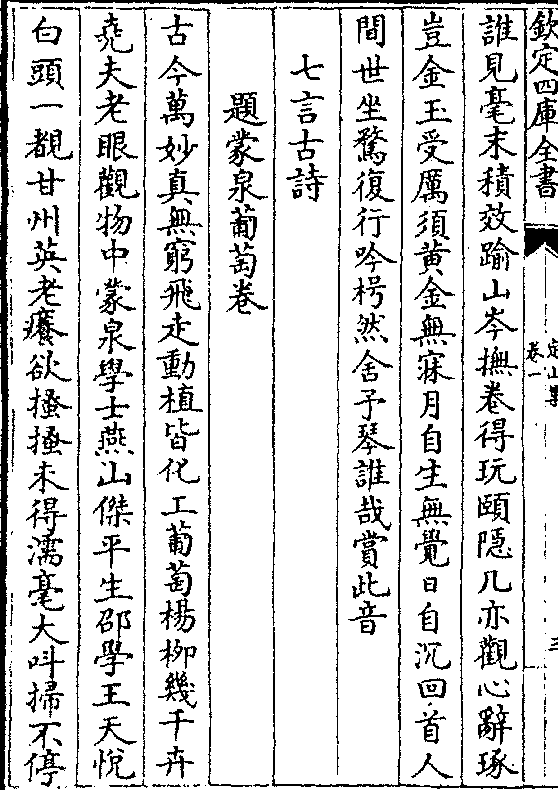 欽定四庫全書
定山集
卷一
三
誰見毫末積效踰山岑撫卷得玩頤隠几亦觀心辭琢
豈金玉受厲須黄金無寐月自生無覺日自沉回首人
間世坐驚復行吟枵然舍予琴誰哉賞此音
七言古詩
題蒙泉葡萄卷
古今萬妙真無窮飛走動植皆化工葡萄楊栁幾千卉
堯夫老眼觀物中蒙泉學士燕山傑平生邵學王天悅
白頭一覩甘州英老癢欲搔搔未得濡毫大呌掃不停